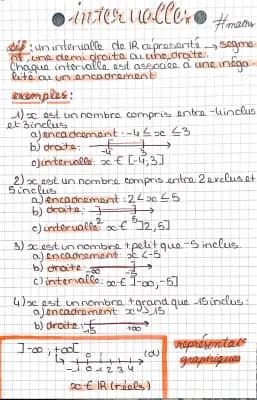 • intervalles • #maths
déf : un intervalle de IR représente → segme
nt, une demi droite ou une droite.
Chaque intervalle est associée à une inéga
lité ou un encadrement
exemples :
1) x est un nombre compris entre -4 inclus
et 3 inclus
a) encadrement : -4 ≤ x ≤ 3
b) droite :
-4 3
c) intervalle : x ∈ [-4;3]
2) x est un nombre compris entre 2 exclus et
5 inclus
a) encadrement : 2 < x ≤ 5
b) droite :
2 5
c) intervalle x ∈ ]2,5]
3) x est un nombre + petit que -5 inclus.
a) encadrement : x ≤ -5
b) droite :
-∞ -5
c) intervalle : x ∈ ]-∞,-5]
4) x est un nombre + grand que 15 inclus :
a) encadrement x ⩾ 15
b) droite :
15 +∞
]-∞, +∞[
-1 0 1 2 3 4 (d)
x ∈ IR (réels)
représentat°
graphiques